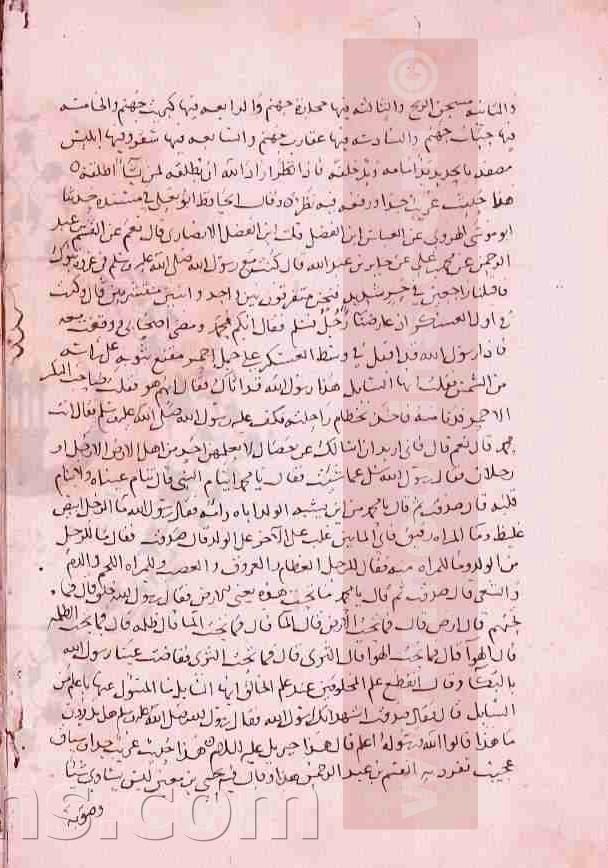 والثانية مسجن الريح والثالثة فيها حجارة جهنم والرابعة فيها كبريت جهنم والخامسة
فيها حيات جهنم والسادسة فيها عقارب جهنم والسابعة فيها سقر وفيها ابليس
مصفد بالحديد يد امامه ويد خلفه فاذا اراد الله ان يطلقه لمن يشا اطلقه
هذا حديث غريب جدا ورفعه فيه نظر وقال الحافظ ابو يعلى في مسنده حدثنا
ابو موسى الهروي عن العباس ابن الفضل قلت ابن الفضل الانصاري قال نعم عن القسم بن عبد
الرحمن عن محمد بن علي عن جابر بن عبد الله قال كنت مع رسول الله صلى الله عليه وسلم في غزوة تبوك
فاقبلنا راجعين في حر شديد فنحن متفرقون بين واحد واثنين منتشرين قال وكنت
في اول العسكر اذ عارضنا رجل فسلم فقال ايكم محمد ومضى اصحابي ووقفت معه
فاذا رسول الله قد اقبل في وسط العسكر على جمل احمر مقنع بثوبه على راسه
من الشمس فقلت ايها السايل هذا رسول الله قد اتاك فقال ايهم هو فقلت صاحب البكر
الاحمر فدنا منه فاخذ بخطام راحلته فكف عليه رسول الله صلى الله عليه وسلم فقال انت
محمد قال نعم قال اني اريد ان اسالك عن خصال لا يعلمهن احد من اهل الارض الا رجل او
رجلان فقال رسول الله سل عما شيت فقال يا محمد اينام النبي قال تنام عيناه ولا ينام
قلبه قال صدقت ثم قال يا محمد من اين يشبه الولد اباه وامه فقال رسول الله ما الرجل ابيض
غليظ وما المراه رقيق فاي الماين غلب على الاخر نزع الولد قال صدقت فقال ما للرجل
من الولد وما للمراه منه فقال للرجل العظام والعروق والعصب وللمراه اللحم والدم
والشعر قال صدقت ثم قال يا محمد ما تحت هذه يعني الارض فقال رسول الله خلق قال فما
تحتهم قال ارض قال فما تحت الارض قال الما قال فما تحت الما قال ظلمه قال فما تحت الظلمه
قال الهوا قال فما تحت الهوا قال الثرى قال فما تحت الثرى ففاضت عينا رسول الله
بالبكا وقال انقطع علم المخلوقين عند علم الخالق ايها السايل ما المسئول عنها باعلم من
السايل قال فقال صدقت اشهد انك رسول الله فقال رسول الله صلى الله عليه وسلم هل تدرون
ما هذا قالوا الله ورسوله اعلم قال هذا جبريل عليه السلام هذا حديث غريب جدا وسياق
عجيب تفرد به القسم بن عبد الرحمن هذا وقال فيه يحيى بن معين ليس يساوي شيا
ns.com